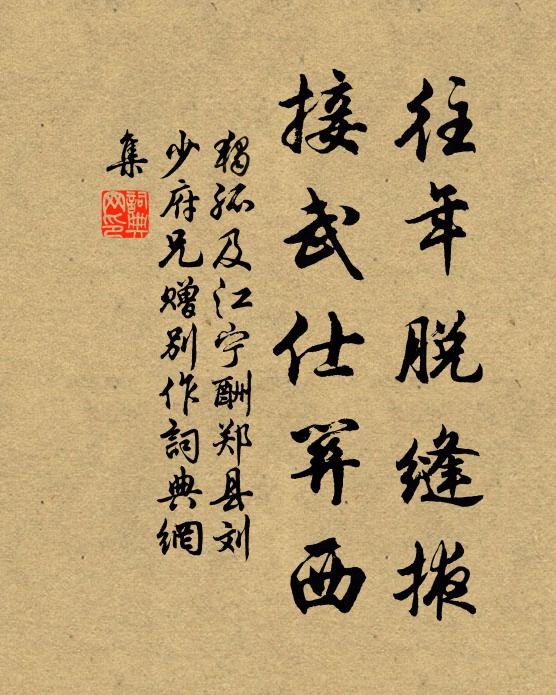 往年脱缝掖
接武仕関西
独孤及江宁酬郑县刘
少府兄赠别作詞典網
集
詞典網印